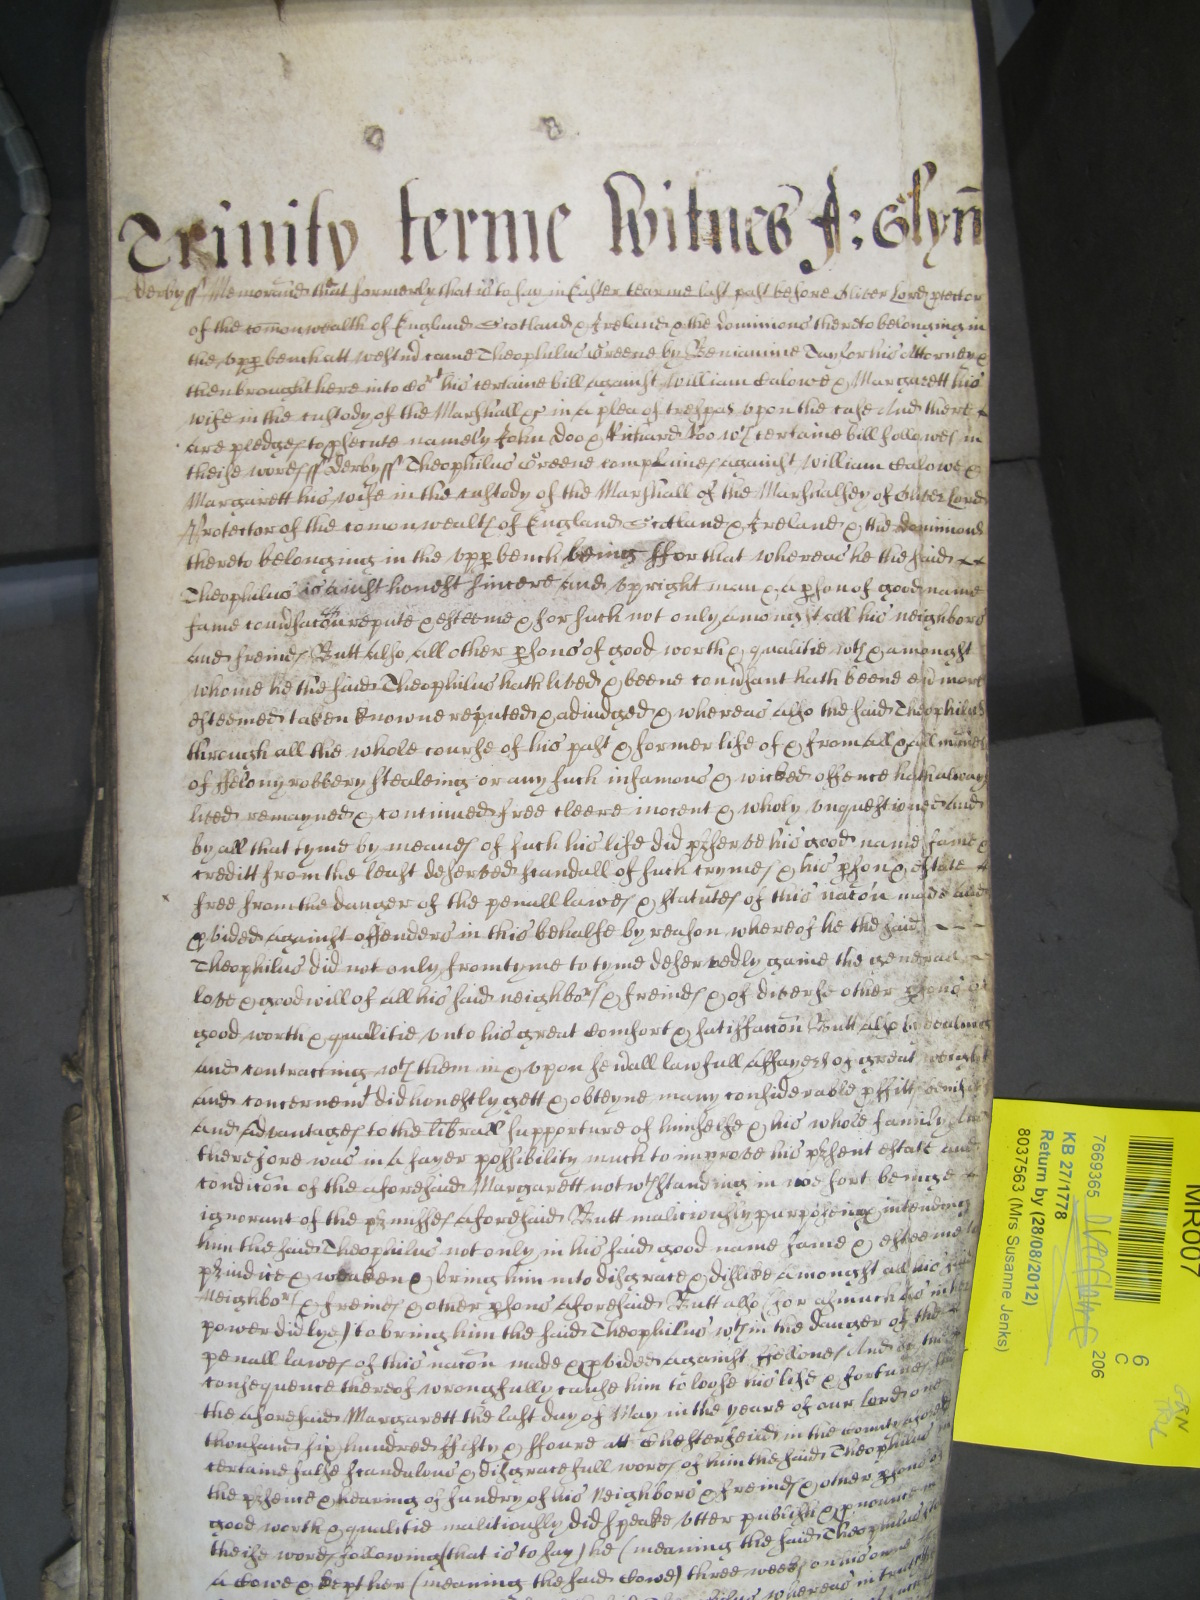 Trinity terme Witnes J: Glyn
Derbyss Memorand that formerly that is to say in Easter tearme last past before Oliver Lord ptector
of the comonwealth of England Scotland & Ireland & the dominions thereto belonging in
the upp bench att Westmr came Theophilus Greene by Beniamine Taylor his Attorney &
then brought here into Cort his certaine bill against William Calowe & Margarett his
wife in the custody of the Marshall &c in a plea of trespas upon the case And there
are pledges to psecute namely John Doo & Richard Roo wch certaine bill followes in
theise wordes ss Derbyss Theophilus Greene complaines against William Calowe &
Margarett his wife in the custody of the Marshall of the Marshalsey of Oliver Lord
Protector of the comonwealth of England Scotland & Ireland & the dominions
thereto belonging in the upp bench being ffor that whereas he the said
Theophilus is a iust honest sincere and upright man & a pson of good name
fame convsacon repute & esteeme & for such not only amongst all his neighbors
and freinds Butt also all other psons of good worth & qualitie wth & amongst
whome he the said Theophilus hath lived & beene convsant hath beene ever more
esteemed taken knowne reputed & adiudged & whereas also the said Theophilus
through all the whole course of his past & former life of & from all & all manner
of ffelony robbery stealeing or any such infamous & wicked offence hath alway
lived remayned & continued free cleere inocent & wholy unquestioned And
by all that tyme by meanes of such his life did pserve his good name fame &
creditt from the least deserved scandall of such crymes & his pson & estate
free from the danger of the penall lawes & statutes of this nacon made and
pvided against offenders in this behalfe by reason whereof he the said
Theophilus did not only from tyme to tyme deservedly gaine the generall
love & goodwill of all his said neighbors & freinds & of diverse other psons of
good worth & quallitie unto his great comfort & satisfaccon Butt also by dealing
and contracting wth them in & upon sevall lawfull affayers of great weight
and concernemt did honestly gett & obteyne many considerable pffitts benifitts
and advantages to the liberall supporture of himselfe & his whole family And
therefore was in a fayer possibility much to improve his psent estate and
condicon of the aforesaid Margarett not wthstanding in noe sort beinge
ignorant of the pmisses aforesaid Butt maliciously purposeing & intending
him the said Theophilus not only in his said good name fame & esteeme to
piudice & weaken & bring him into disgrace & dislike amongst all his said
Neighbors & freinds & other psons aforesaid Butt also (for asmuch as in her
power did lye) to bring him the said Theophilus wthin the danger of the
penall lawes of this nacon made & pvided against ffellones And by the
consequence thereof wrongfully cause him to loose his life & fortunes
the aforesaid Margarett the last day of May in the yeare of our Lord one
thousand six hundred ffifty & ffoure att Chesterfeild in the county aforesd
certaine false scandalous & disgracefull words of him the said Theophilus in
the psence & hearing of sundry of his Neighbors & freinds & other psons of
good worth & qualitie malitiously did speake utter publish & pnounce in
theise words following (that is to say) he (meaning the said Theophilus)
a Cowe & kept her (meaning the said Cowe) three weeks on his owne
whereas in truth
MR007
6
C
206
7669365
KB 27/1778
Return by (28/08/2012)
8037563 (Mrs Susanne Jenks)